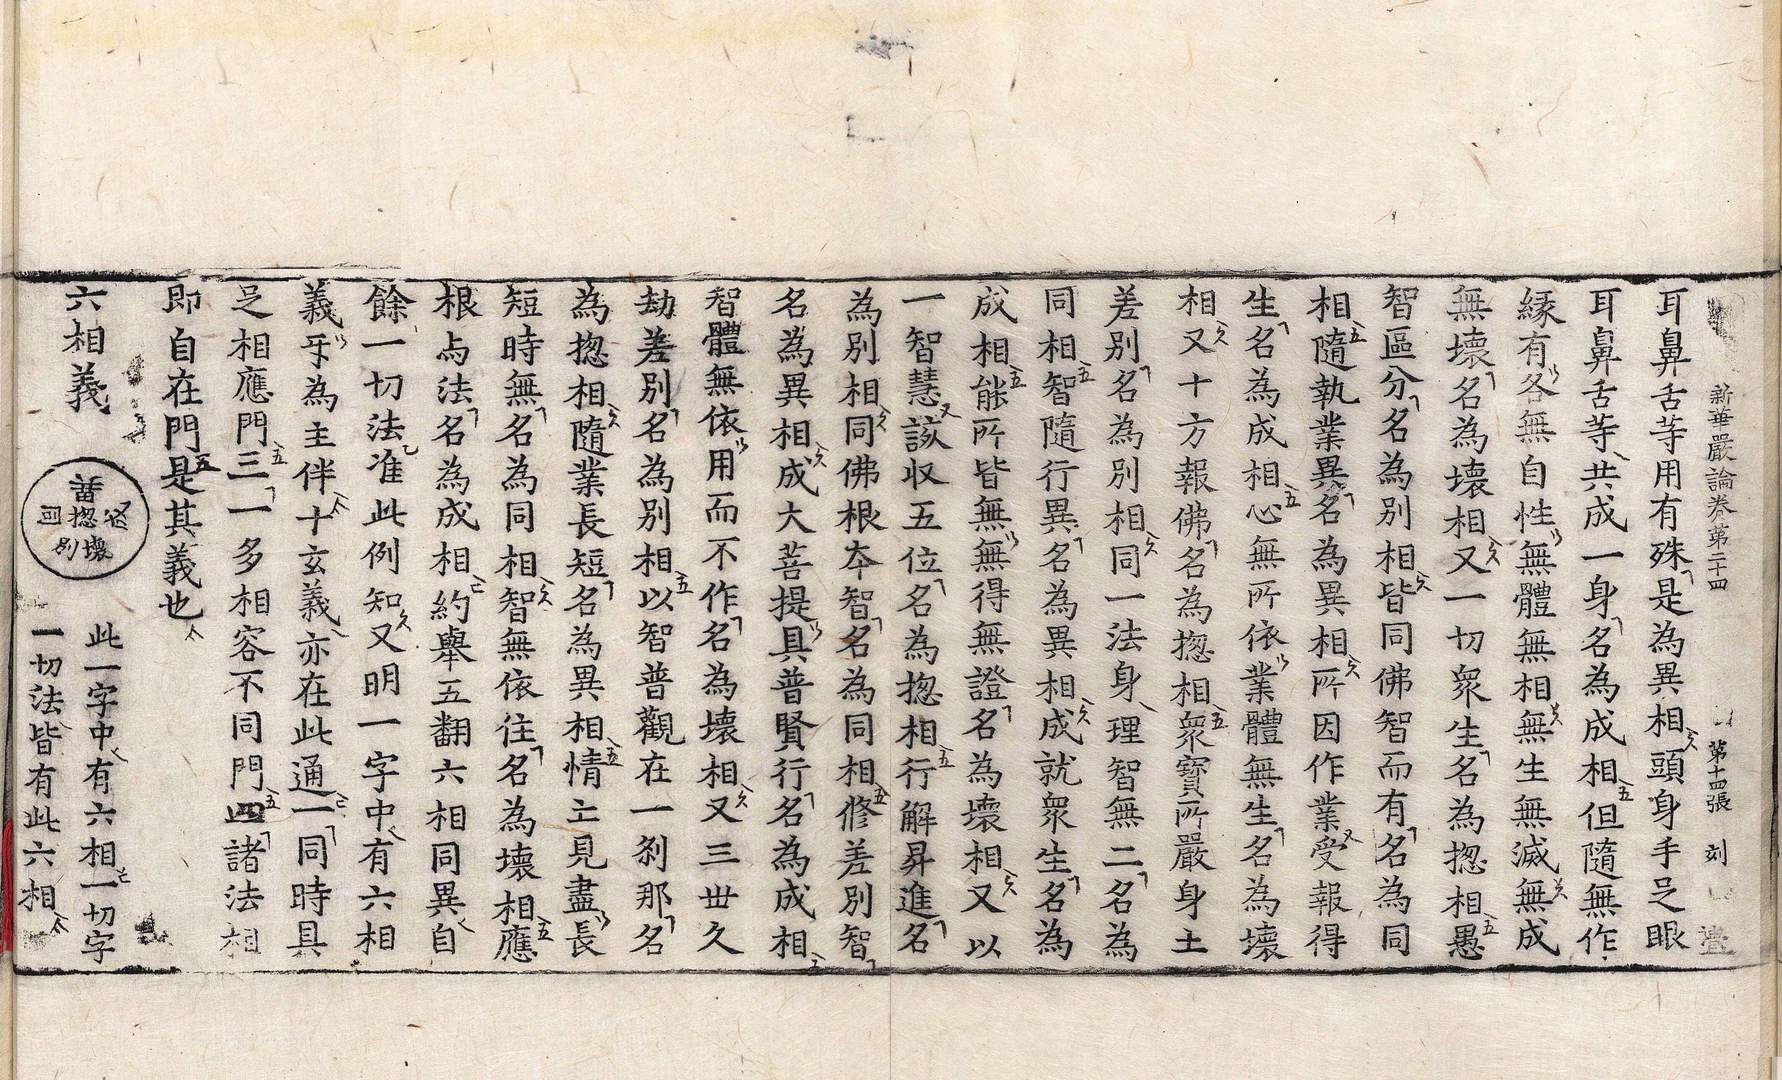 新華嚴論卷第二十四 第十四張 刻
耳鼻舌等用有殊是為異相頭身手足眼
耳鼻舌等共成一身名為成相但隨無作
緣有各無自性無體無相無生無滅無成
無壞名為壞相又一切衆生名為揔相愚
智區分名為別相皆同佛智而有名為同
相隨執業異名為異相所因作業受報得
生名為成相心無所依業體無生名為壞
相又十方報佛名為揔相衆寶所嚴身土
差別名為別相同一法身理智無二名為
同相智隨行異名為異相成就衆生名為
成相能所皆無無得無證名為壞相又以
一智慧該収五位名為揔相行解昇進名
為別相同佛根夲智名為同相修差別智
名為異相成大菩提具普賢行名為成相
智體無依用而不作名為壞相又三丗久
劫差別名為別相以智普觀在一剎那名
為揔相隨業長短名為異相情亡見盡長
短時無名為同相智無依住名為壞相應
根与法名為成相約舉五翻六相同異自
餘一切法准此例知又明一字中有六相
義㸦為主伴十玄義亦在此通一同時具
足相應門三一多相容不同門四諸法相
即自在門是其義也
六相義
揔
壞
別
此一字中有六相一切字
一切法皆有此六相